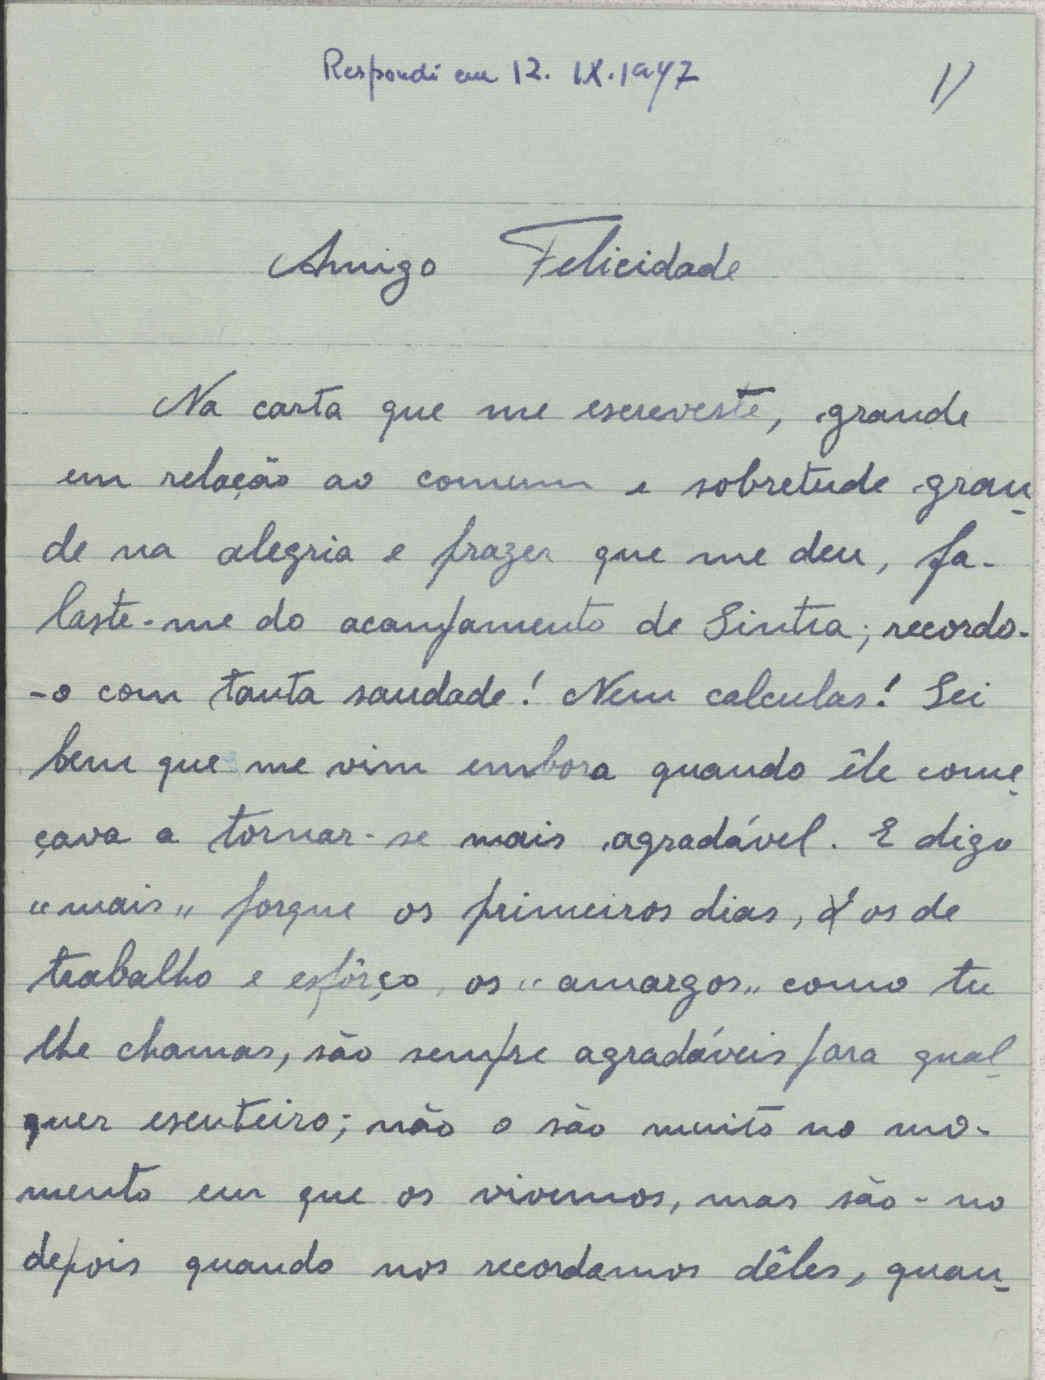 Respondi em 12. IX. 1947
1)
Amigo Felicidade
Na carta que me escreveste, grande
em relação ao comum e sobretudo gran-
de na alegria e prazer que me deu, fa-
laste-me do acampamento de Sintra; recordo-
-o com tanta saudade! Nem calculas! Sei
bem que me vim embora quando êle come-
çava a tornar-se mais agradável. E digo
"mais" porque os primeiros dias, os de
trabalho e esfôrço, os "amargos" como tu
lhe chamas, são sempre agradáveis para qual-
quer escuteiro; não o são muito no mo-
mento em que os vivemos, mas são-no
depois quando nos recordamos dêles, quan-